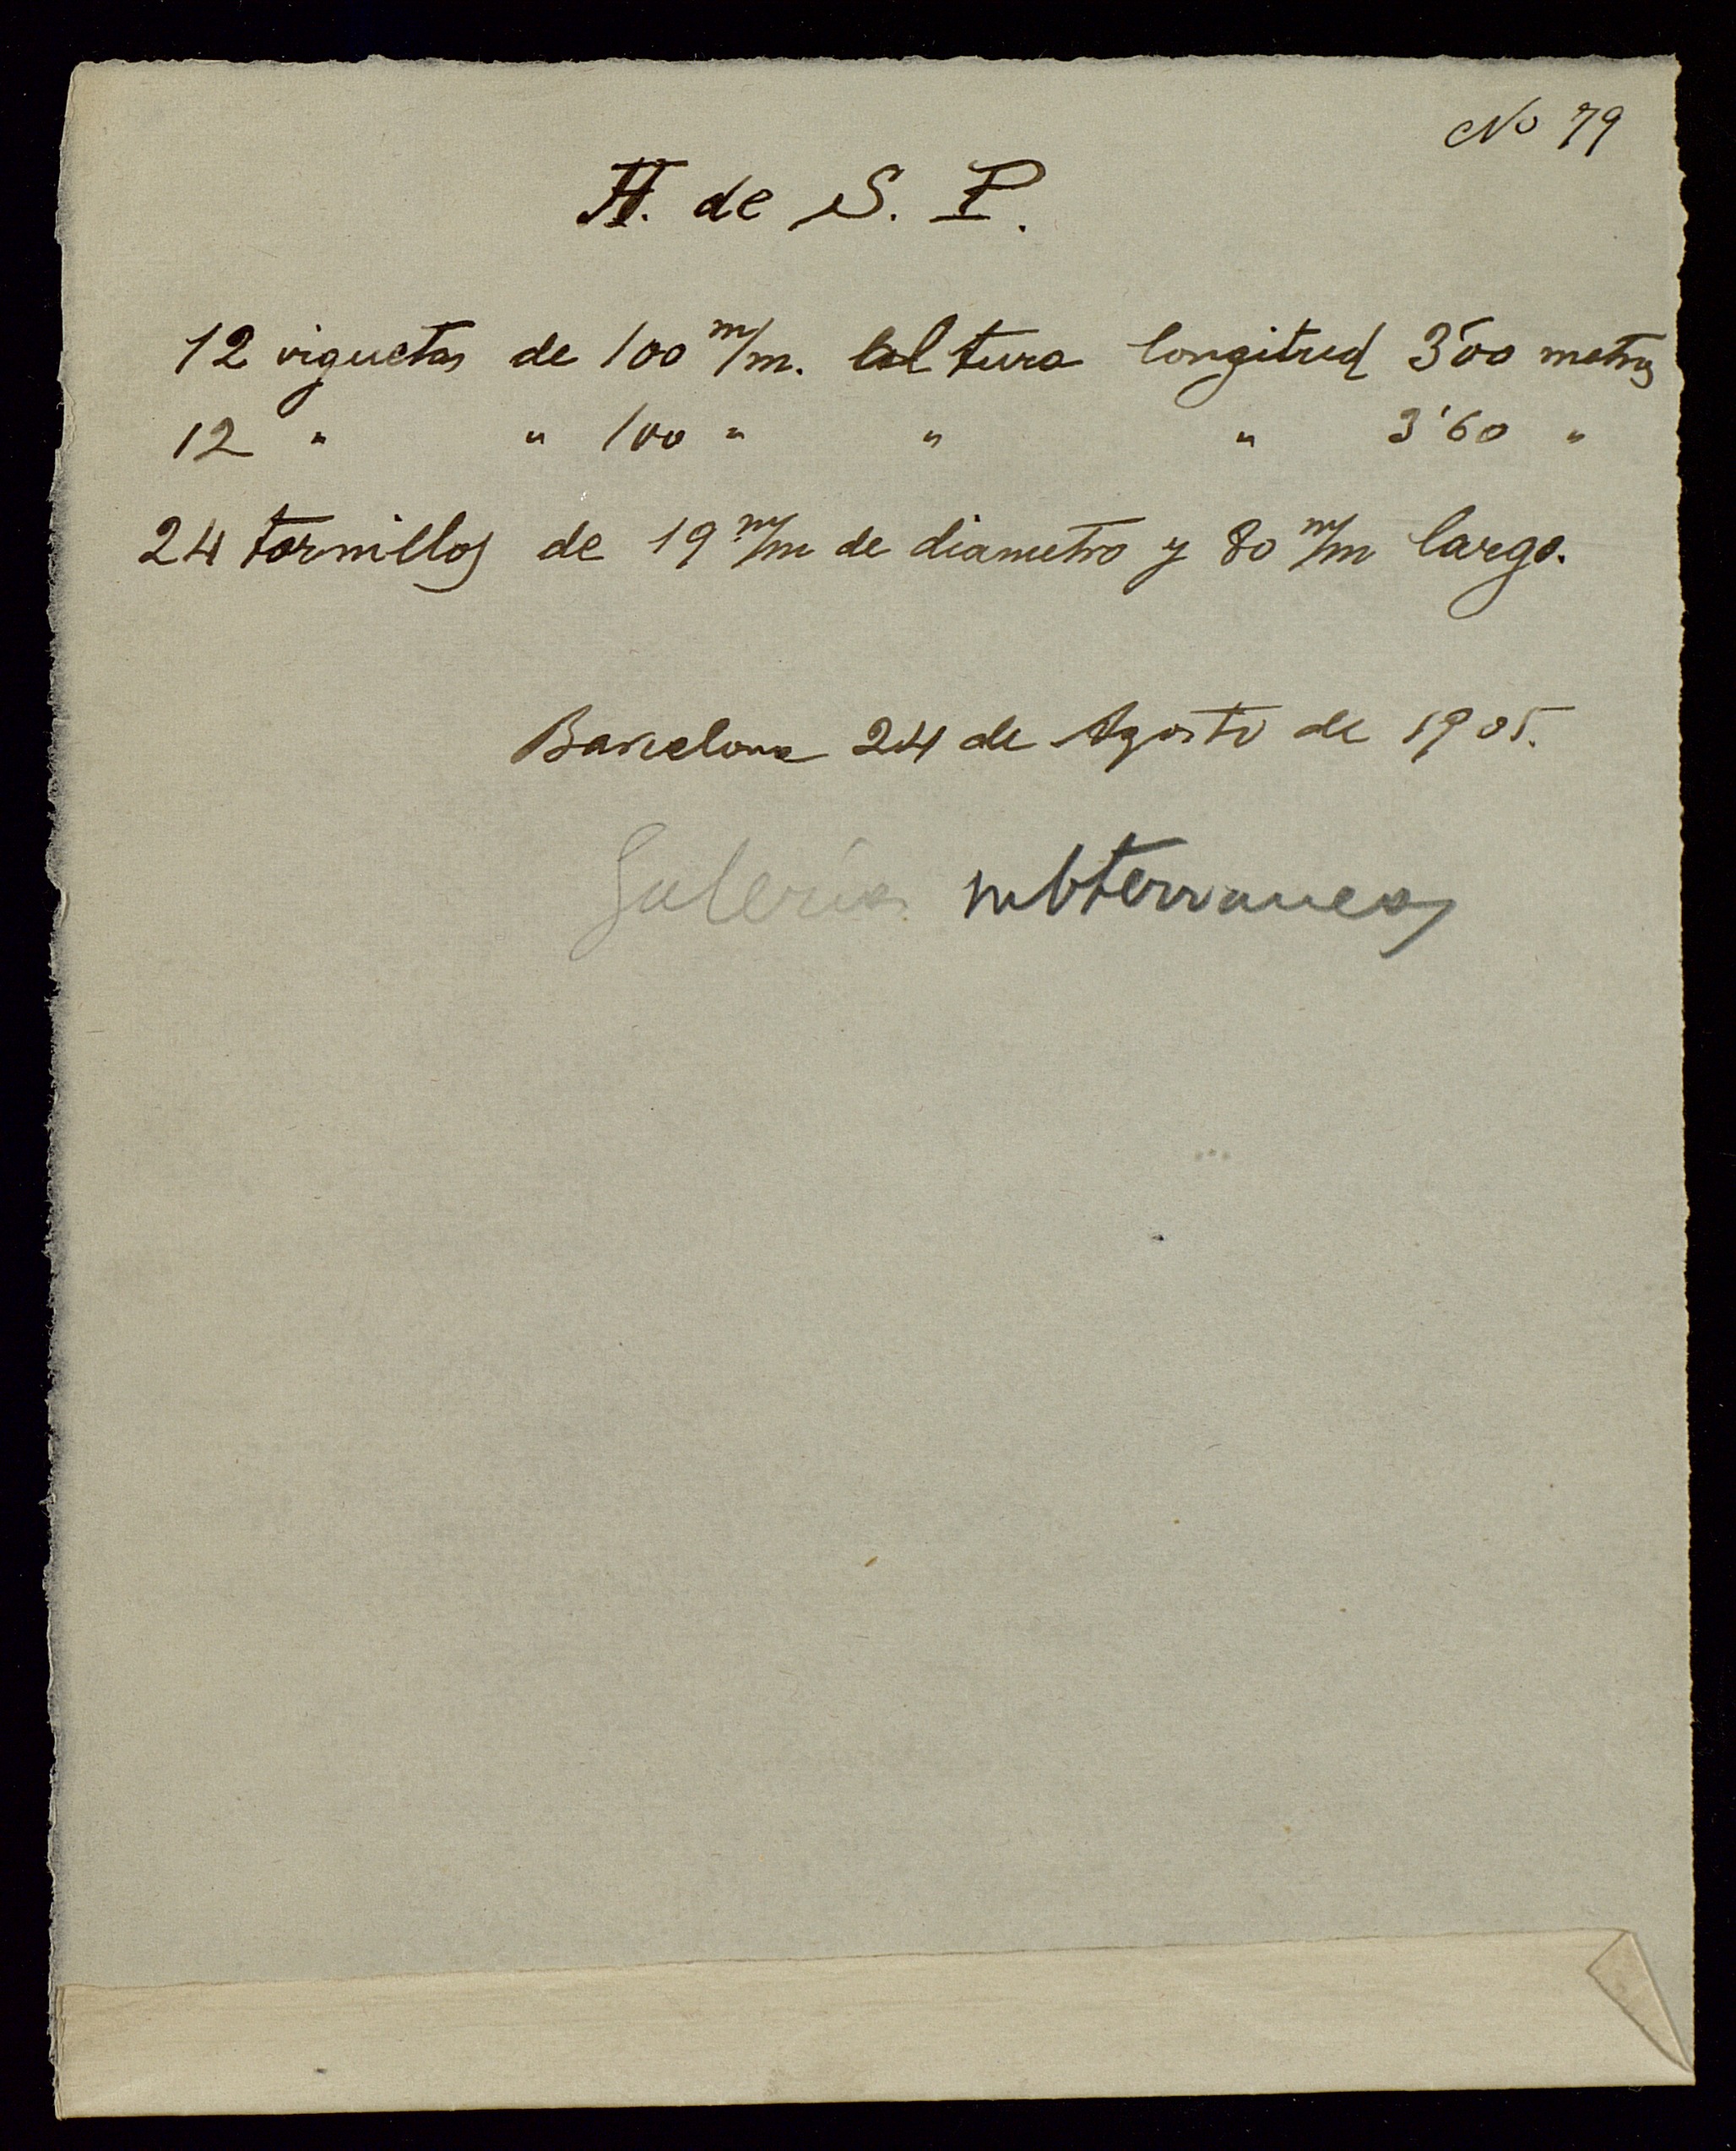 No 79
H. de S. P.
12 viguetas de 100 m/m. altura longitud 3'00 metros
12 " " 100 " " " 3'60 "
24 tornillos de 19 m/m de diametro y 80 m/m largo.
Barcelona 24 de Agosto de 1905.
Galerias subterraneas